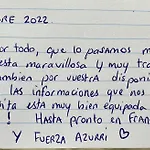 BRE 2022.
por todo, que lo pasamos m
esta maravillosa y muy tra
tambien por vuestra disponi
las informaciones que nos
hita esta muy bien equipada
! HASTA PRONTO EN FRAN
Y FUERZA AZURRI ♡